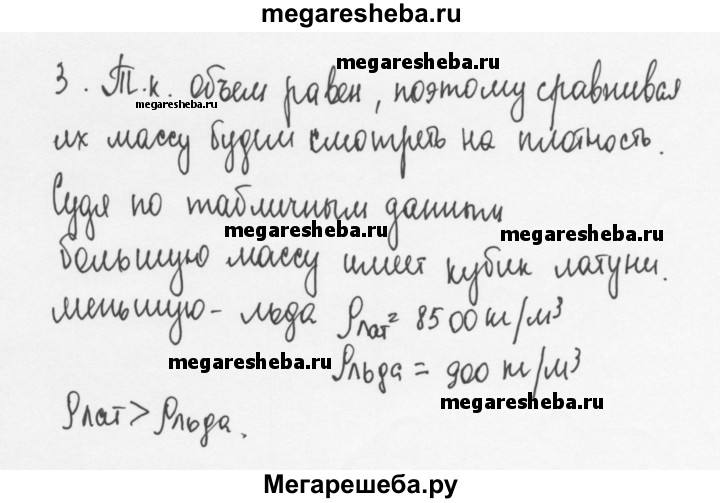 megaresheba.ru
megaresheba.ru
3. Т.к. объем равен, поэтому сравнивая
megaresheba.ru
их массу будем смотреть на плотность.
Судя по табличным данным
megaresheba.ru
megaresheba.ru
большую массу имеет кубик латуни.
меньшую - льда ρлат = 8500 кг/м³
megaresheba.ru
ρльда = 900 кг/м³
megaresheba.ru
ρлат > ρльда.
Мегарешеба.ру